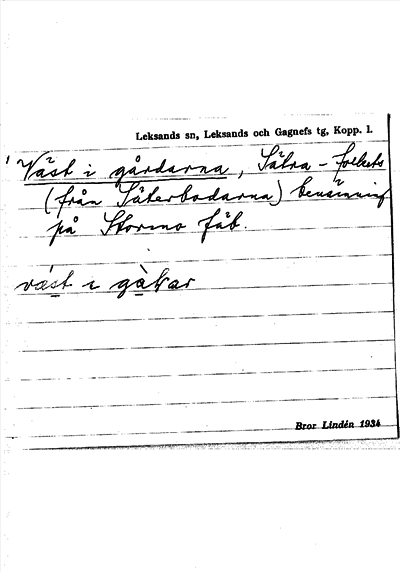 Leksands sn, Leksands och Gagnefs tg, Kopp. l.
Väst i gårdarna, Sätra-folkets
(från Säterbodarna) benämning
på Stormo fäb.
väst i
Bror Lindén 1934